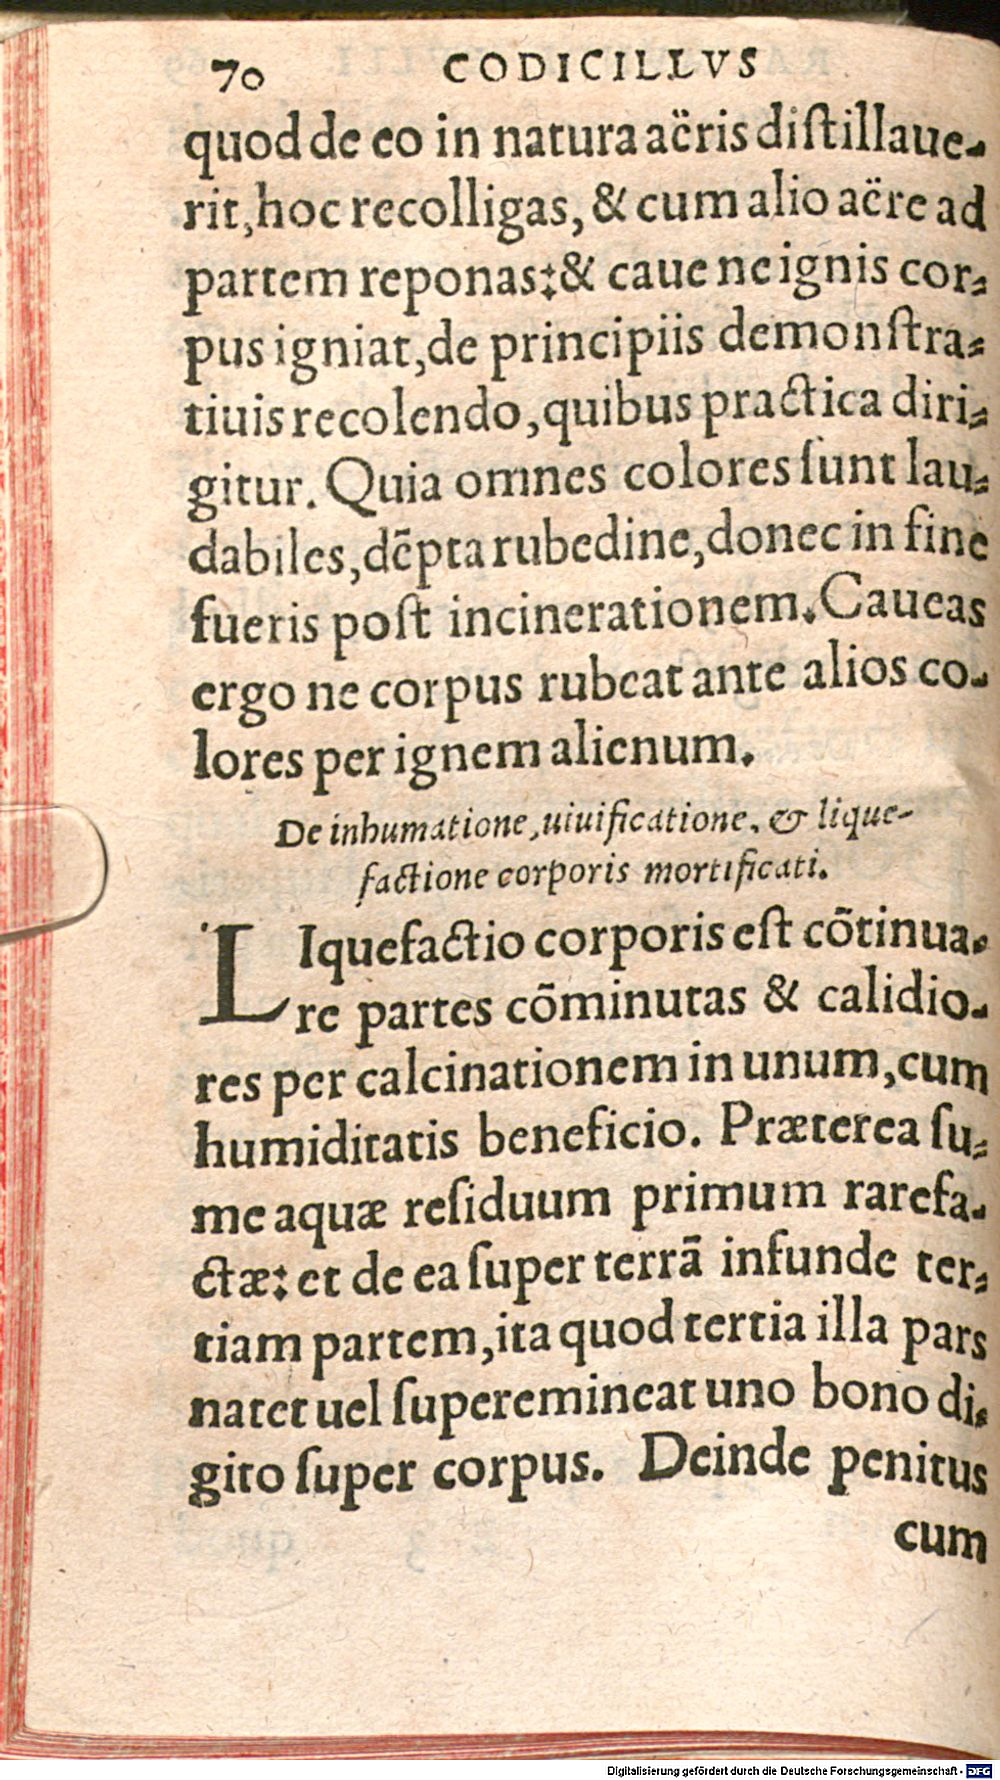 70 CODICILLVS
quod de eo in natura aëris distillaue-
rit, hoc recolligas, & cum alio aëre ad
partem reponas: & caue ne ignis cor-
pus igniat, de principiis demonstra-
tiuis recolendo, quibus practica diri-
gitur. Quia omnes colores sunt lau-
dabiles, dẽpta rubedine, donec in fine
fueris post incinerationem. Caueas
ergo ne corpus rubeat ante alios co-
lores per ignem alienum.
De inhumatione, uiuificatione, & lique-
factione corporis mortificati.
LIquefactio corporis est cõtinua-
re partes cõminutas & calidio-
res per calcinationem in unum, cum
humiditatis beneficio. Præterea su-
me aquæ residuum primum rarefa-
ctæ: et de ea super terrã infunde ter-
tiam partem, ita quod tertia illa pars
natet uel superemineat uno bono di-
gito super corpus. Deinde penitus
cum
Digitalisierung gefördert durch die Deutsche Forschungsgemeinschaft - DFG